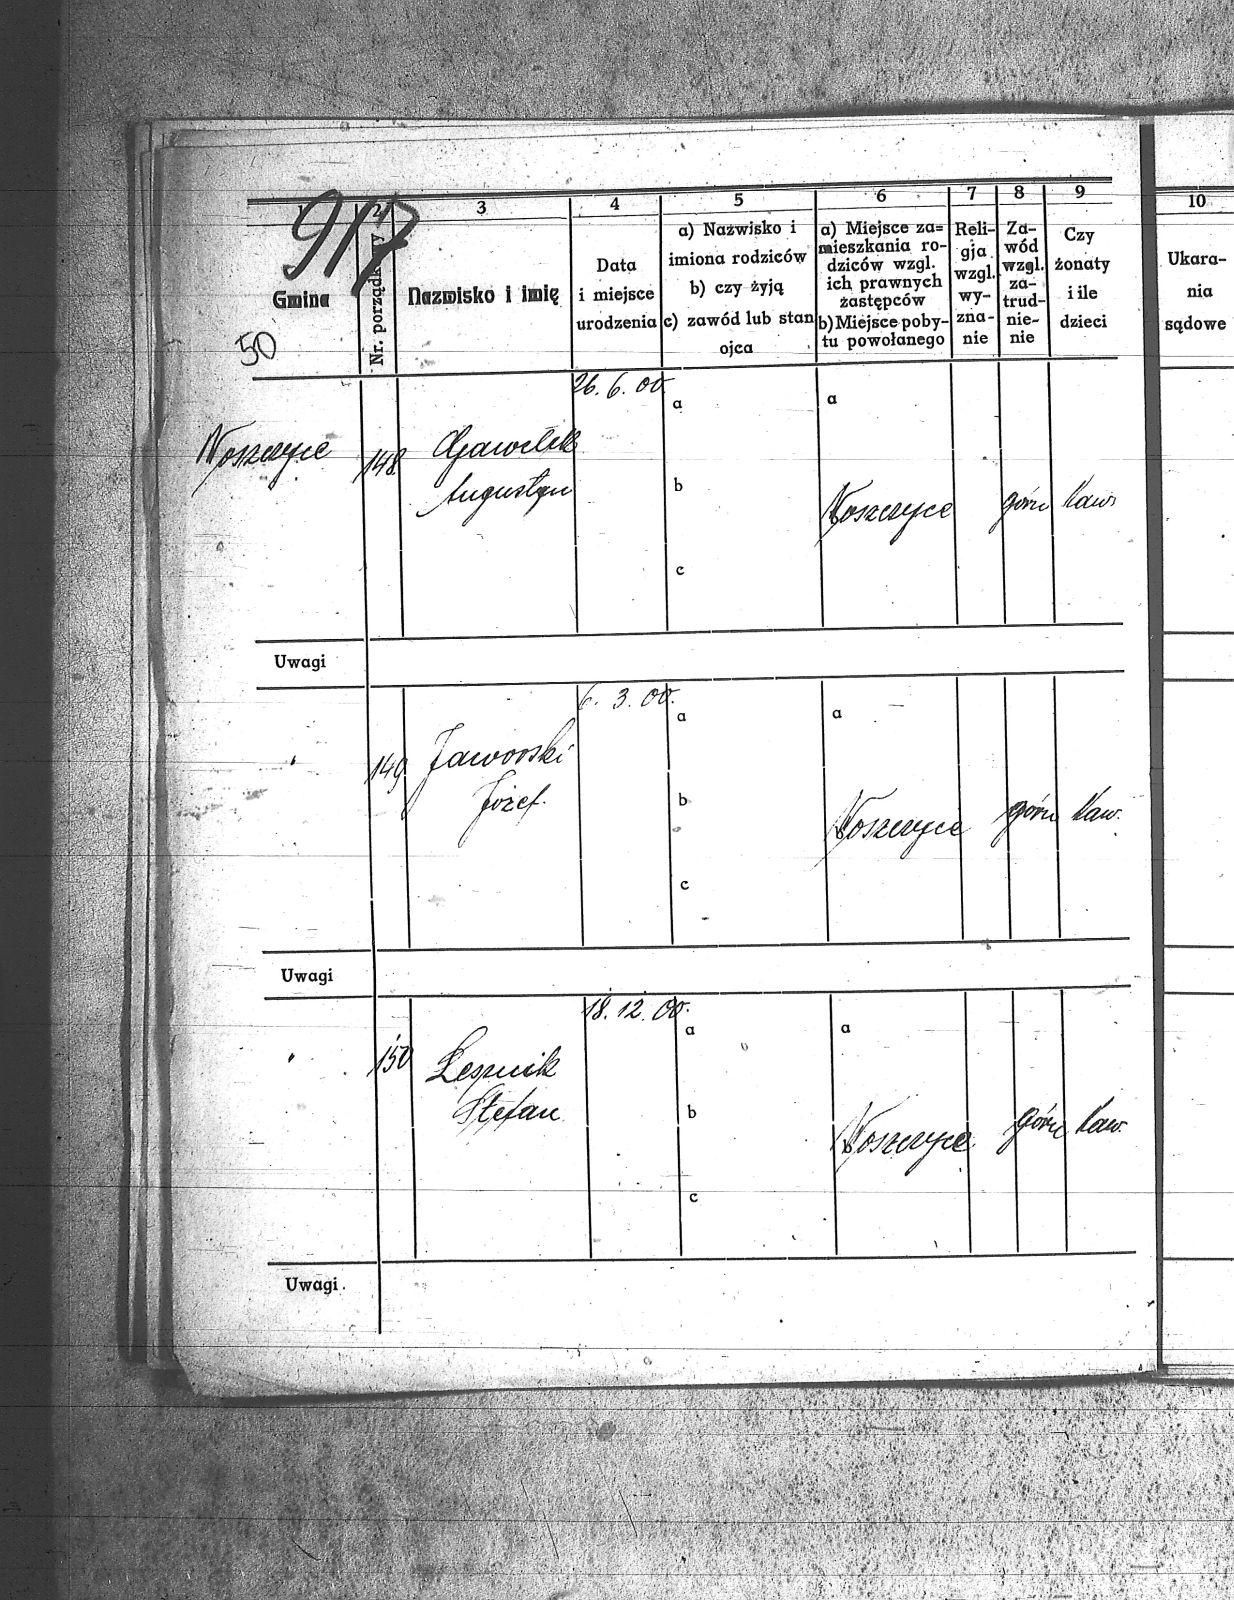 917
1 2 3 4 5 6 7 8 9 10
Gmina
Nr. porządk
Nazwisko i imię
Data
i miejsce
urodzenia
a) Nazwisko i
imiona rodziców
b) czy żyją
c) zawód lub stan
ojca
a) Miejsce za=
mieszkania ro-
dziców wzgl.
ich prawnych
zastępców
b) Miejsce poby-
tu powołanego
Reli-
gja
wzgl.
wy-
zna-
nie
Za-
wód
wzgl.
za-
trud-
nie-
nie
Czy
żonaty
i ile
dzieci
Ukara-
nia
sądowe
50
26. 6. 00.
a a
Woszczyce 148 Gawelek
Augustyn
b Woszczyce górn kaw.
c
Uwagi
6. 3. 00.
a a
" 149 Jaworski
Józef.
b Woszczyce górn kaw.
c
Uwagi
18. 12. 00.
a a
" 150
Stefan
b Woszczyce górn kaw.
c
Uwagi